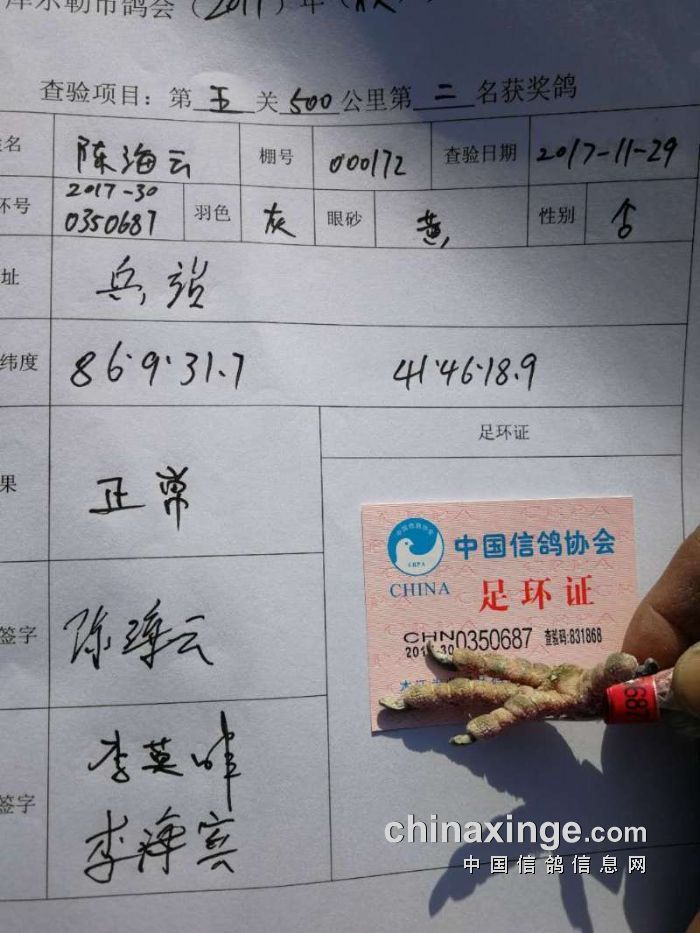 库尔勒市鸽会（2017）年（
查验项目：第 五 关 500 公里第 二 名获奖鸽
姓名 陈海云 棚号 000172 查验日期 2017-11-29
环号 2017-30 0350687 羽色 灰 眼砂 黄 性别
址 兵站
纬度 86.9.31.7 41.46.18.9
果 正常 足环证
中国信鸽协会
CRPA
CHINA
足环证
CHN 0350687 查验码:831868
签字 陈海云
签字 李英
李海宾
687
chinaxinge.com
中国信鸽信息网